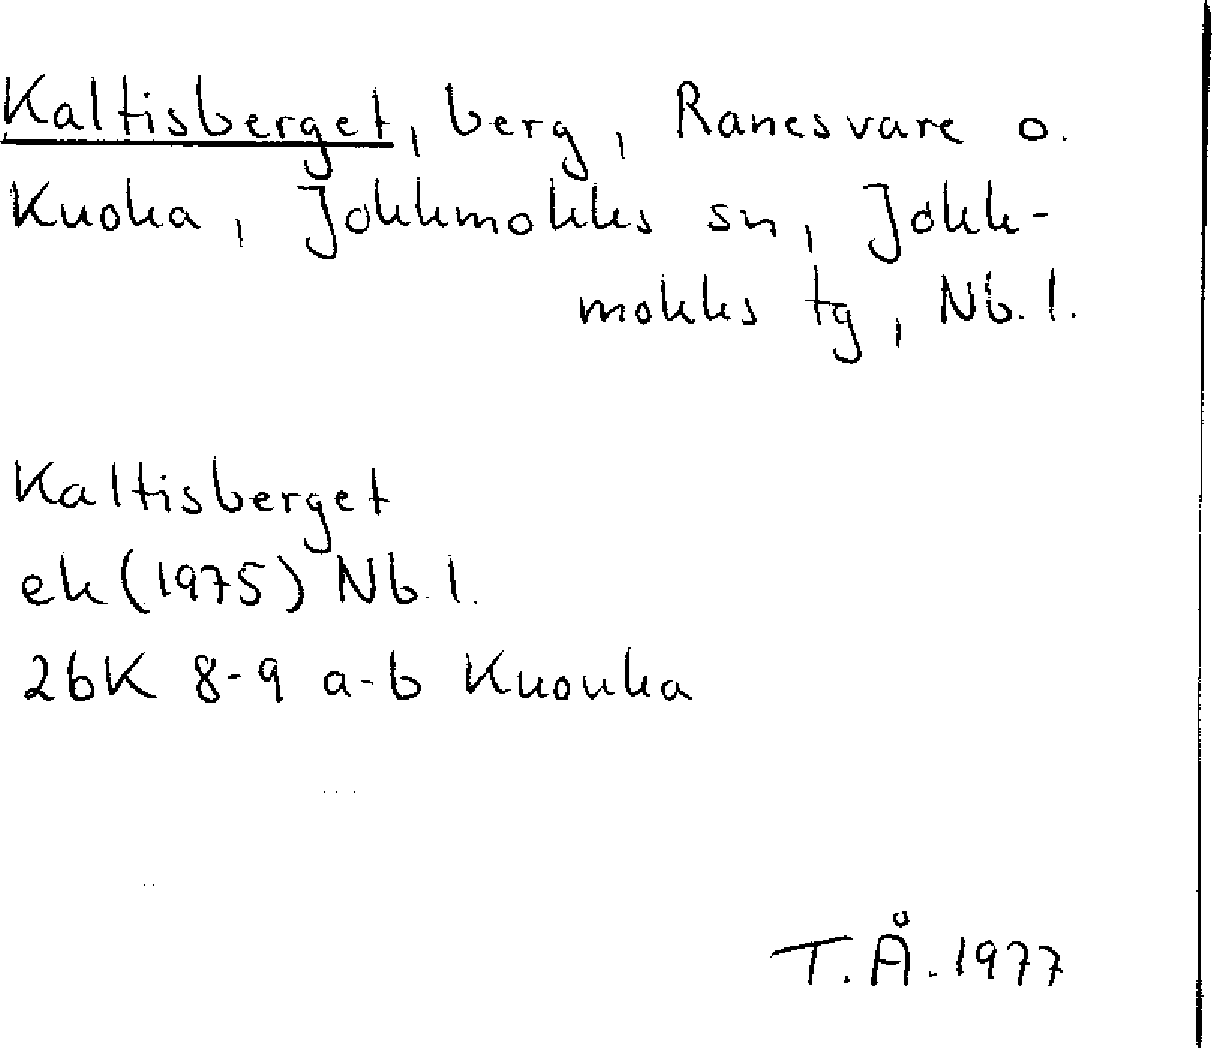 Kaltisberget, berg, Ranesvare o.
Kuoka, Jokkmokks sn, Jokk-
mokks tg, Nb. l.
Kaltisberget
ek (1975) Nb. l.
26K 8-9 a-b Kuouka
T.Å. 1977